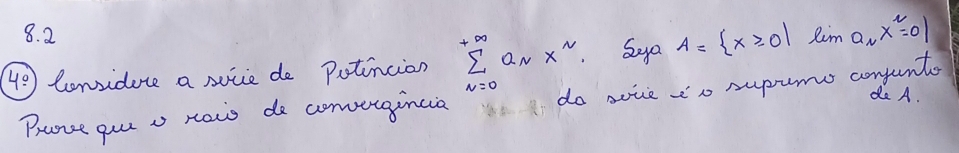 8.2
4º) Considere a série de Potências $\sum_{N=0}^{+\infty} a_N x^N$. Seja A = {x ≥ 0 | lim a_N x^N = 0}
Prove que o raio de convergência da série é o supremo conjunto
de A.